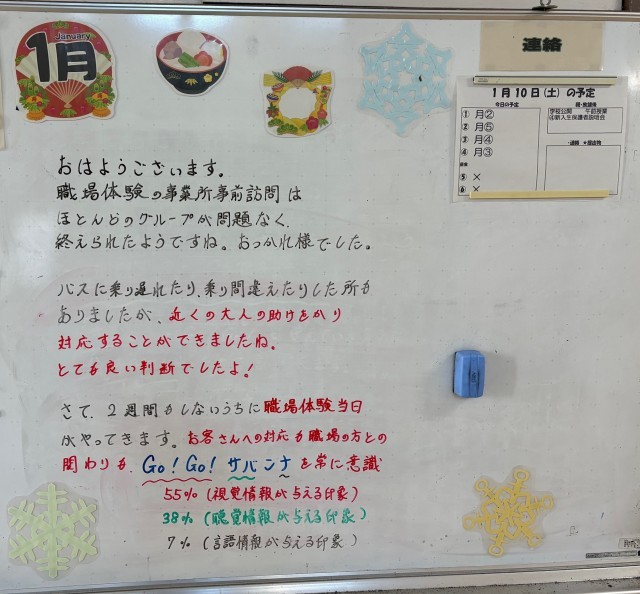 January
1月
連絡
1月10日(土)の予定
今日の予定
① 月②
② 月⑤
③ 月④
④ 月③
⑤ ×
⑥ ×
学校公開 午前授業
④新入生保護者説明会
おはようございます。
職場体験の事業所事前訪問は
ほとんどのグループが問題なく、
終えられたようですね。おつかれ様でした。
バスに乗り遅れたり、乗り間違えたりした所も
ありましたが、近くの大人の助けをかり
対応することができましたね。
とても良い判断でしたよ!
さて、2週間もしないうちに職場体験当日
がやってきます。お客さんへの対応も職場の方との
関わりも、Go!Go!サバンナを常に意識
55%(視覚情報が与える印象)
38%(聴覚情報が与える印象)
7%(言語情報が与える印象)